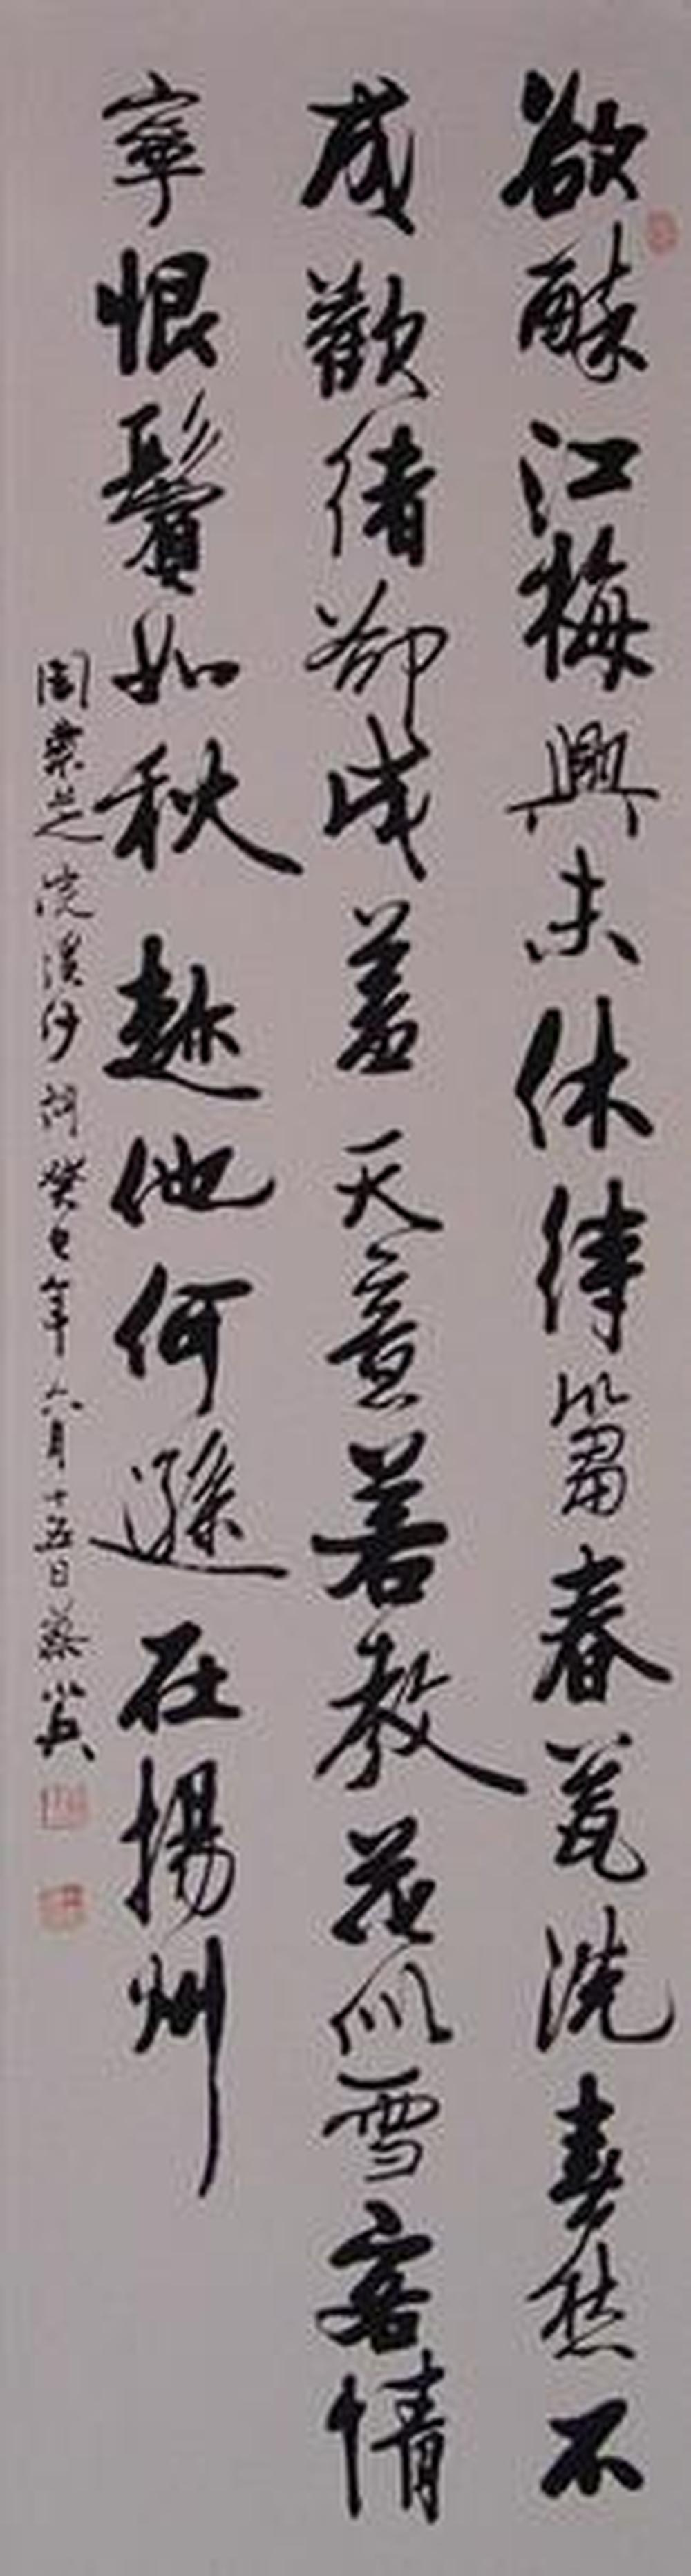 欲醉江梅興未休待篘春瓮洗春愁不
成歡緒卻成羞天意若教花似雪客情
寧恨鬢如秋趁他何遜在揚州
周紫芝浣溪沙詞癸巳年六月十五日蔡